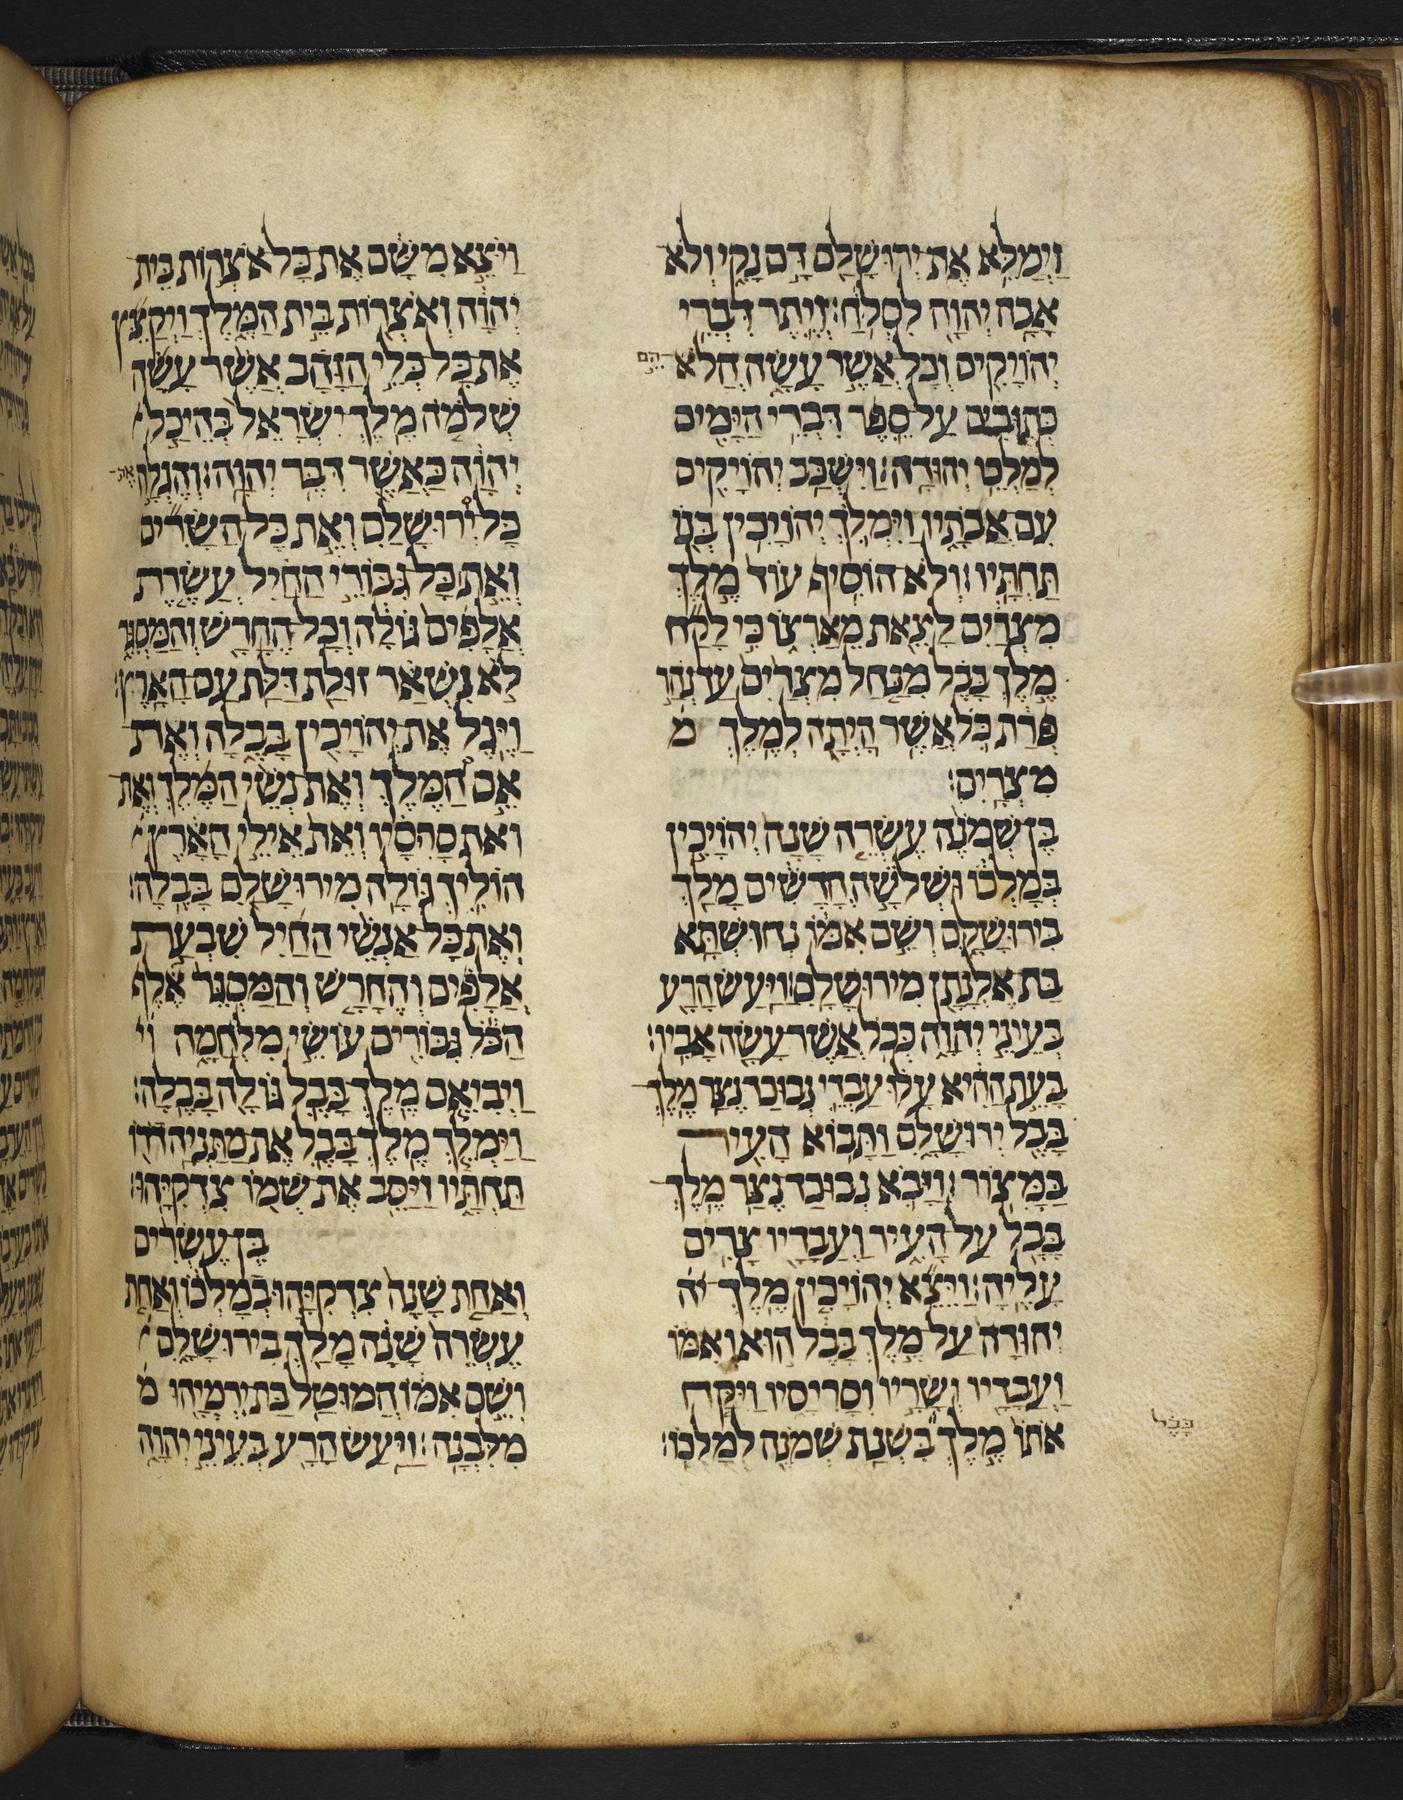 וַיְמַלֵּא אֶת יְרוּשָׁלִַם דָּם נָקִי וְלֹא
אָבָה יְהוָה לִסְלֹחַ׃ וְיֶתֶר דִּבְרֵי
יְהוֹיָקִים וְכָל אֲשֶׁר עָשָׂה הֲלֹא הֵם
כְתוּבִים עַל סֵפֶר דִּבְרֵי הַיָּמִים
לְמַלְכֵי יְהוּדָה׃ וַיִּשְׁכַּב יְהוֹיָקִים
עִם אֲבֹתָיו וַיִּמְלֹךְ יְהוֹיָכִין בְּנוֹ
תַּחְתָּיו׃ וְלֹא הוֹסִיף עוֹד מֶלֶךְ
מִצְרַיִם לָצֵאת מֵאַרְצוֹ כִּי לָקַח
מֶלֶךְ בָּבֶל מִנַּחַל מִצְרַיִם עַד נְהַר
פְּרָת כֹּל אֲשֶׁר הָיְתָה לְמֶלֶךְ מ
מִצְרָיִם׃
בֶּן שְׁמֹנֶה עֶשְׂרֵה שָׁנָה יְהוֹיָכִין
בְּמָלְכוֹ וּשְׁלֹשָׁה חֳדָשִׁים מָלַךְ
בִּירוּשָׁלִָם וְשֵׁם אִמּוֹ נְחוּשְׁתָּא
בַת אֶלְנָתָן מִירוּשָׁלִָם׃ וַיַּעַשׂ הָרַע
בְּעֵינֵי יְהוָה כְּכֹל אֲשֶׁר עָשָׂה אָבִיו׃
בָּעֵת הַהִיא עָלוּ עַבְדֵי נְבוּכַדְנֶצַּר מֶלֶךְ
בָּבֶל יְרוּשָׁלִָם וַתָּבוֹא הָעִיר
בַּמָּצוֹר׃ וַיָּבֹא נְבוּכַדְנֶצַּר מֶלֶךְ
בָּבֶל עַל הָעִיר וַעֲבָדָיו צָרִים
עָלֶיהָ׃ וַיֵּצֵא יְהוֹיָכִין מֶלֶךְ יה
יְהוּדָה עַל מֶלֶךְ בָּבֶל הוּא וְאִמּוֹ
וַעֲבָדָיו וְשָׂרָיו וְסָרִיסָיו וַיִּקַּח
אֹתוֹ מֶלֶךְ בִּשְׁנַת שְׁמֹנֶה לְמָלְכוֹ׃
בָּבֶל
וַיּוֹצֵא מִשָּׁם אֶת כָּל אֹצְרוֹת בֵּית
יְהוָה וְאֹצְרוֹת בֵּית הַמֶּלֶךְ וַיְקַצֵּץ
אֶת כָּל כְּלֵי הַזָּהָב אֲשֶׁר עָשָׂה
שְׁלֹמֹה מֶלֶךְ יִשְׂרָאֵל בְּהֵיכַל
יְהוָה כַּאֲשֶׁר דִּבֶּר יְהוָה׃ וְהִגְלָה אֶת
כָּל יְרוּשָׁלִַם וְאֶת כָּל הַשָּׂרִים
וְאֵת כָּל גִּבּוֹרֵי הַחַיִל עֲשֶׂרֶת
אֲלָפִים גּוֹלָה וְכָל הֶחָרָשׁ וְהַמַּסְגֵּר
לֹא נִשְׁאַר זוּלַת דַּלַּת עַם הָאָרֶץ׃
וַיֶּגֶל אֶת יְהוֹיָכִין בָּבֶלָה וְאֶת
אֵם הַמֶּלֶךְ וְאֶת נְשֵׁי הַמֶּלֶךְ וְאֶת
וְאֶת סָרִיסָיו וְאֵת אֵילֵי הָאָרֶץ
הוֹלִיךְ גּוֹלָה מִירוּשָׁלִַם בָּבֶלָה׃
וְאֵת כָּל אַנְשֵׁי הַחַיִל שִׁבְעַת
אֲלָפִים וְהֶחָרָשׁ וְהַמַּסְגֵּר אֶלֶף
הַכֹּל גִּבּוֹרִים עוֹשֵׂי מִלְחָמָה וי
וַיְבִיאֵם מֶלֶךְ בָּבֶל גּוֹלָה בָּבֶלָה׃
וַיַּמְלֵךְ מֶלֶךְ בָּבֶל אֶת מַתַּנְיָה דֹדוֹ
תַּחְתָּיו וַיַּסֵּב אֶת שְׁמוֹ צִדְקִיָּהוּ׃
בֶּן עֶשְׂרִים
וְאַחַת שָׁנָה צִדְקִיָּהוּ בְמָלְכוֹ וְאַחַת
עֶשְׂרֵה שָׁנָה מָלַךְ בִּירוּשָׁלִָם
וְשֵׁם אִמּוֹ חֲמוּטַל בַּת יִרְמְיָהוּ מ
מִלִּבְנָה׃ וַיַּעַשׂ הָרַע בְּעֵינֵי יְהוָה